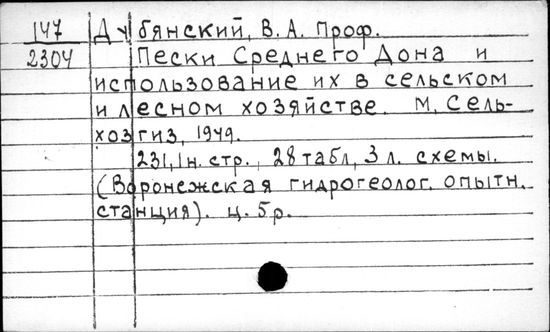 147 Дубянский, В. А. Проф.
2304 Пески Среднего Дона и
использование их в сельском
и лесном хозяйстве. М, Сель-
хозгиз, 1949.
231, 1 н. стр., 28 табл, 3 л. схемы.
(Воронежская гидрогеолог. опытн.
станция). ц. 5 р.